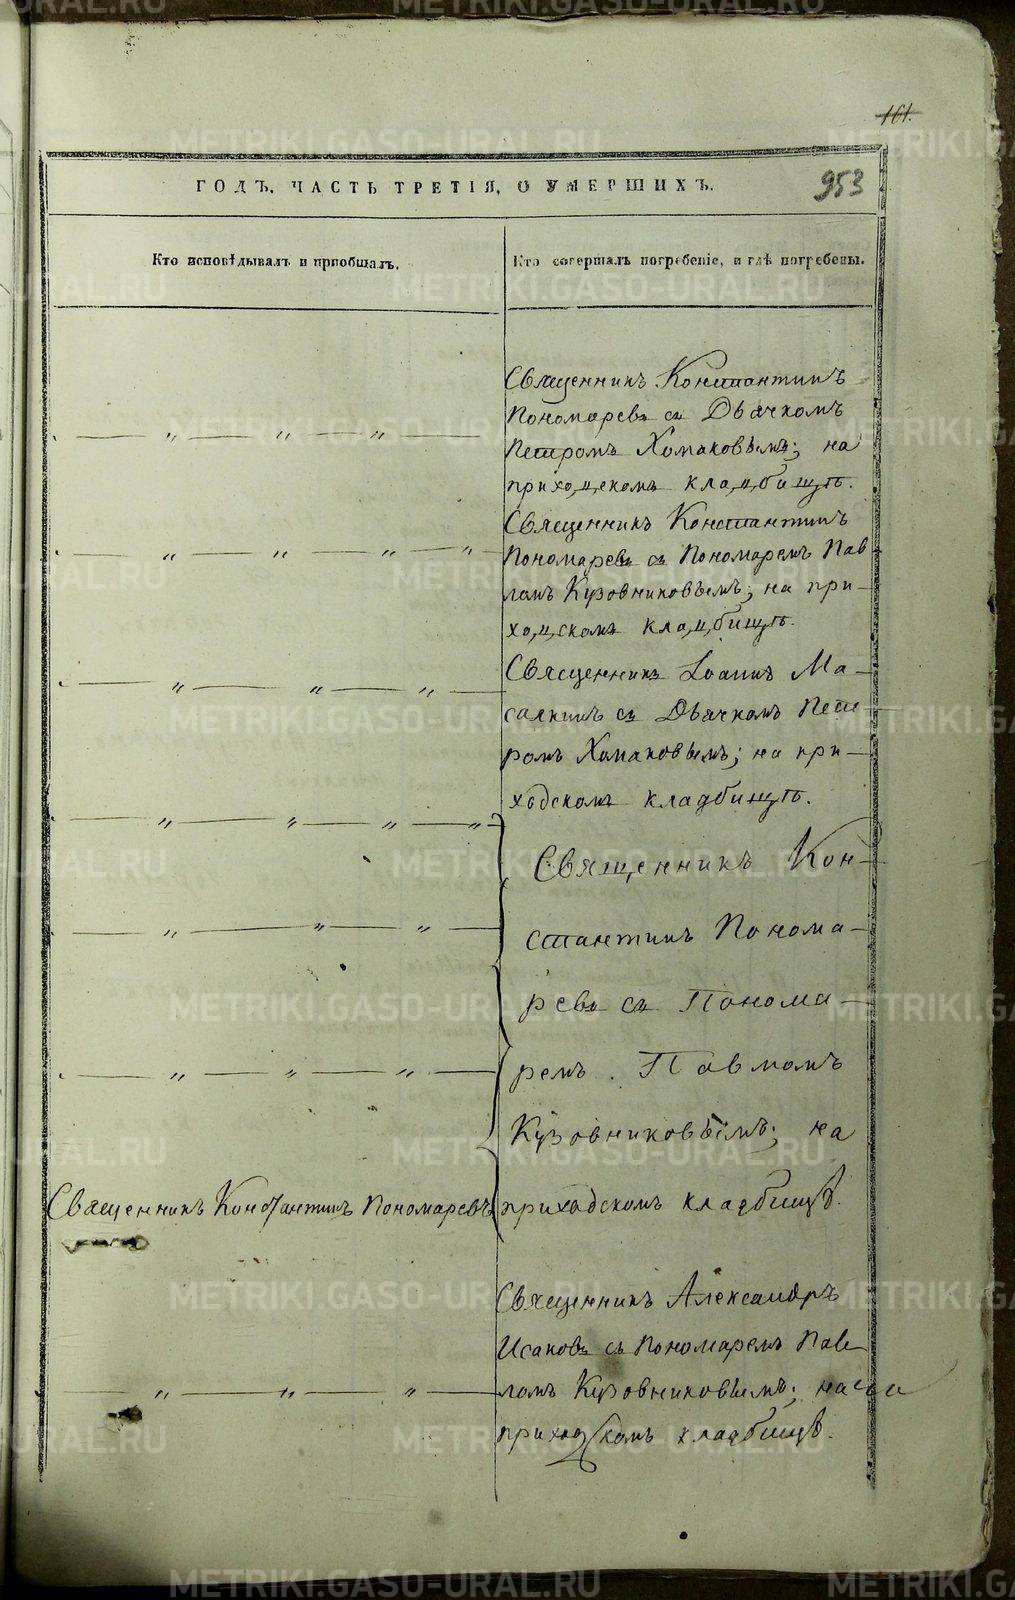 161.
953
ГОДЪ, ЧАСТЬ ТРЕТІЯ, О УМЕРШИХЪ.
Кто исповѣдывалъ и пріобщалъ.
Кто совершалъ погребеніе, и гдѣ погребены.
Священникъ Константинъ
Пономаревъ съ Дьячкомъ
Петромъ Хомаковымъ; на
приходскомъ кладбищѣ.
Священникъ Константинъ
Пономаревъ съ Пономаремъ Пав-
ломъ Кузовниковымъ; на при-
ходскомъ кладбищѣ.
Священникъ Іоаннъ Ма-
салкинъ съ Дьячкомъ Пет-
ромъ Хомаковымъ; на при-
ходскомъ кладбищѣ.
Священникъ Кон-
стантинъ Понома-
ревъ съ Понома-
ремъ Павломъ
Кузовниковымъ; на
Священникъ Константинъ Пономаревъ
приходскомъ кладбищѣ.
Священникъ Александръ
Исаковъ съ Пономаремъ Пав-
ломъ Кузовниковымъ; на
приходскомъ кладбищѣ.
METRIKI.GASO-URAL.RU